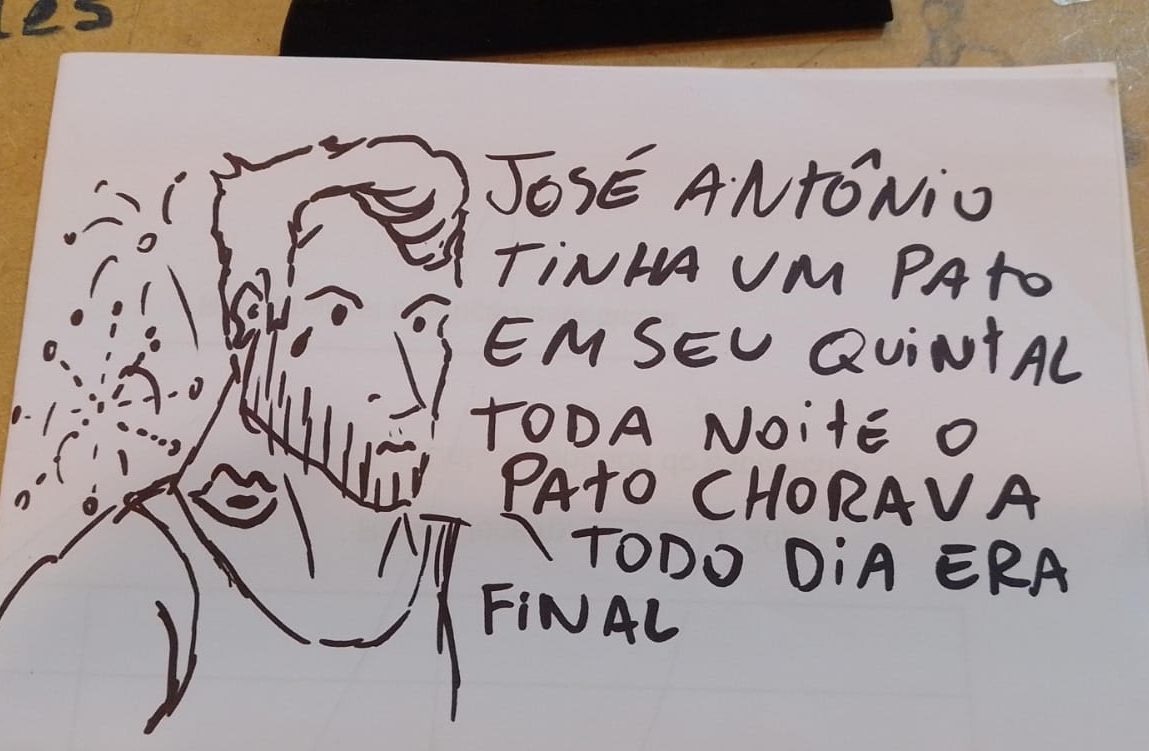 es
JOSÉ ANTÔNIO
TINHA UM PATO
EM SEU QUINTAL
TODA NOITE O
PATO CHORAVA
TODO DIA ERA
FINAL